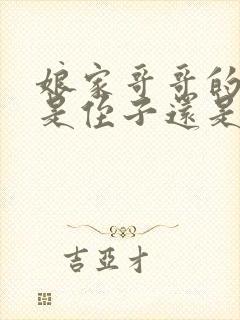 娘家哥哥的
是侄子還是
吉亞才